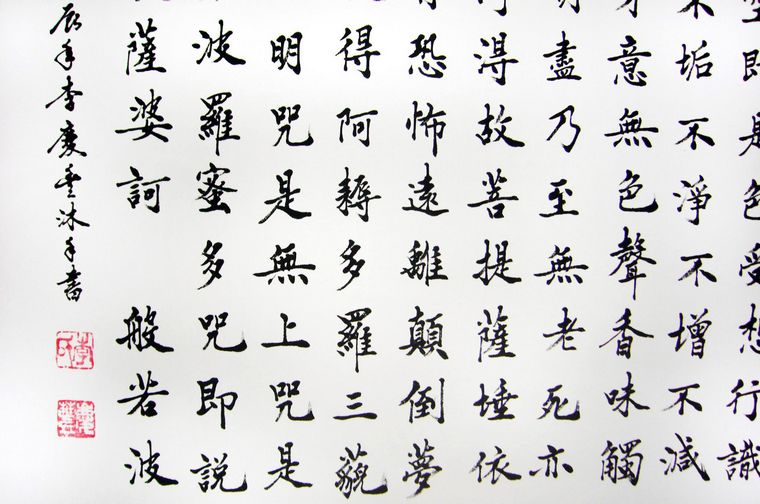 即是色受想行識
不垢不淨不增不減
意無色聲香味觸
盡乃至無老死亦
得故菩提薩埵依
有恐怖遠離顛倒夢
得阿耨多羅三藐
明咒是無上咒是
波羅蜜多咒即說
薩婆訶 般若波
辰年李慶雲沐手書